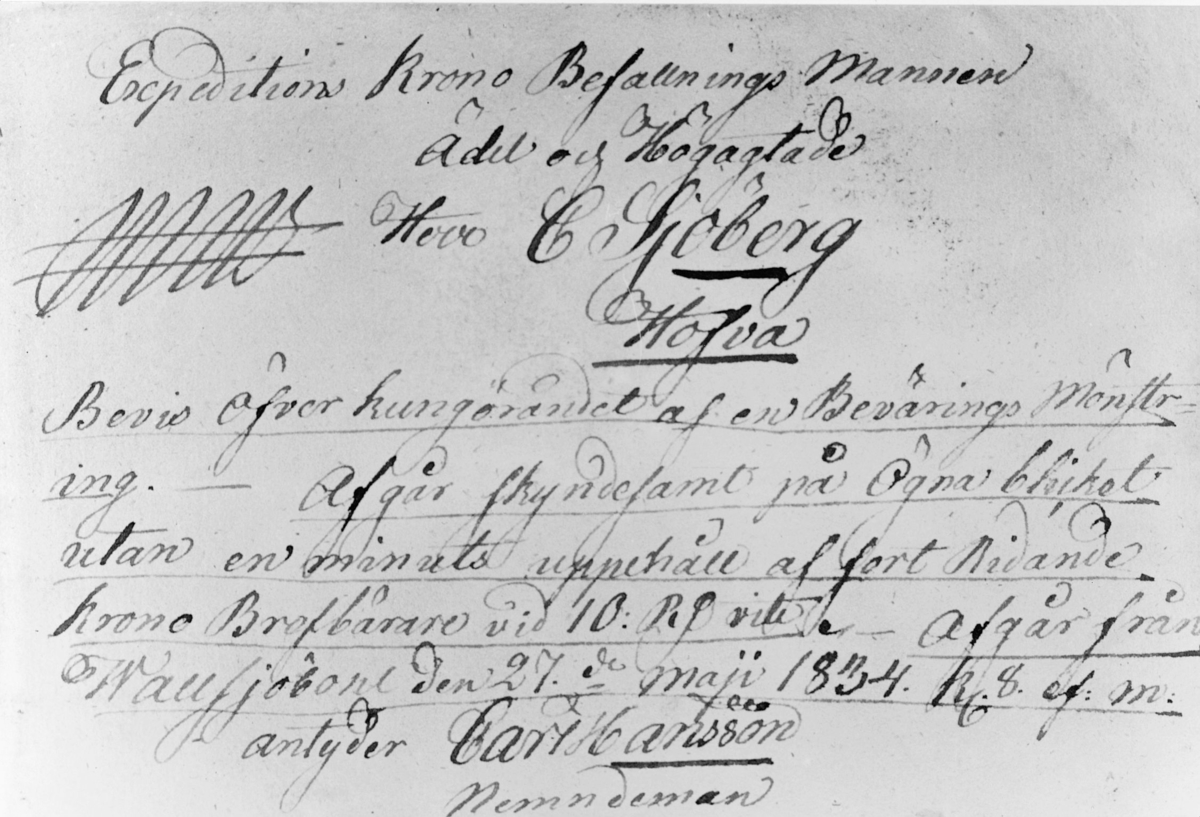 Expeditions Krono Befallnings Mannen
Ädel och Högagtade
Herr C Sjöberg
Hofva
Bevis Öfver kungörandet af en Bevärings Mönstr=
ing. — Afgår skyndesamt på Ögna bliket
utan en minuts uppehåll af fort Ridande
Krono Brefbärare vid 10: R vite — Afgår från
den 27.de maji 1834. Kl. 8. ef: m:
antyder Carl Hansson
Nemndeman